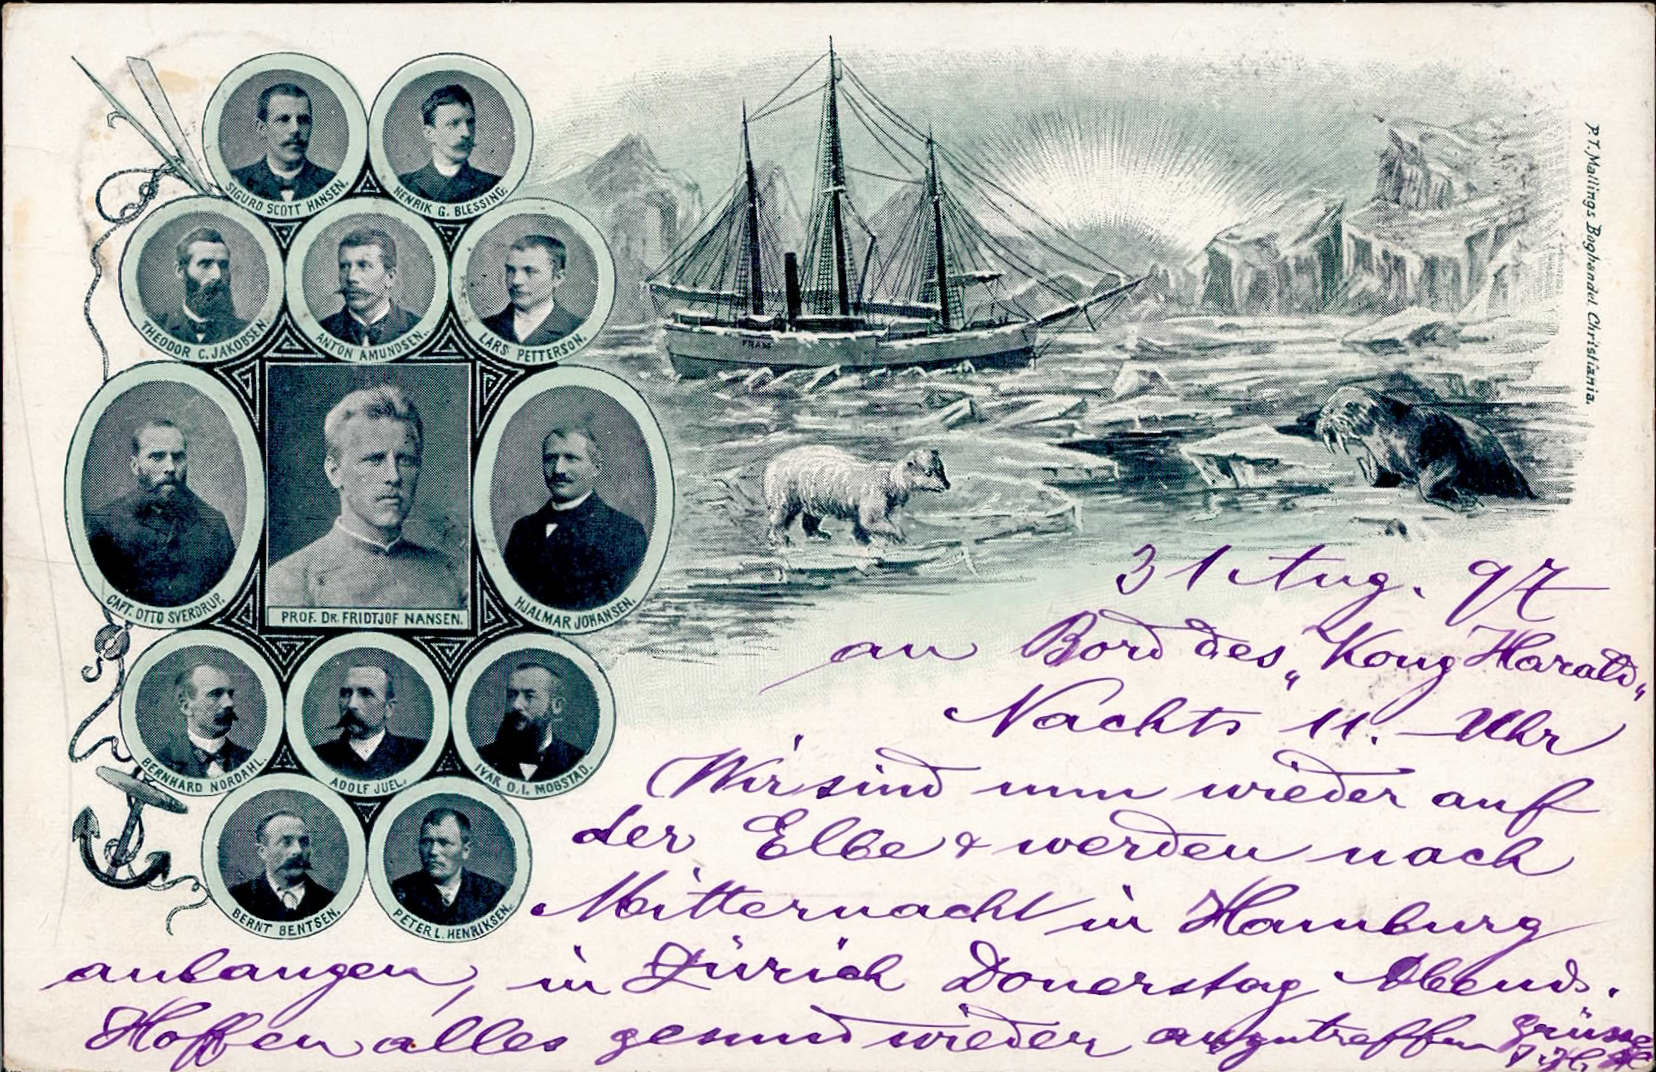 SIGURD SCOTT HANSEN.
HENRIK G. BLESSING.
THEODOR C. JAKOBSEN.
ANTON AMUNDSEN.
LARS PETTERSON.
CAPT. OTTO SVERDRUP.
PROF. DR. FRIDTJOF NANSEN.
HJALMAR JOHANSEN.
BERNHARD NORDAHL.
ADOLF JUEL.
IVAR O.I. MOGSTAD.
BERNT BENTSEN.
PETER L. HENRIKSEN.
FRAM
P.T. Mallings Boghandel, Christiania.
31 Aug. 97
an Bord des „Kong Harald„
Nachts 11. Uhr
Wir sind nun wieder auf
der Elbe & werden nach
Mitternacht in Hamburg
anlangen, in Zürich Donerstag Abend.
Hoffen alles gesund wieder anzutreffen Grüsse
J. H.